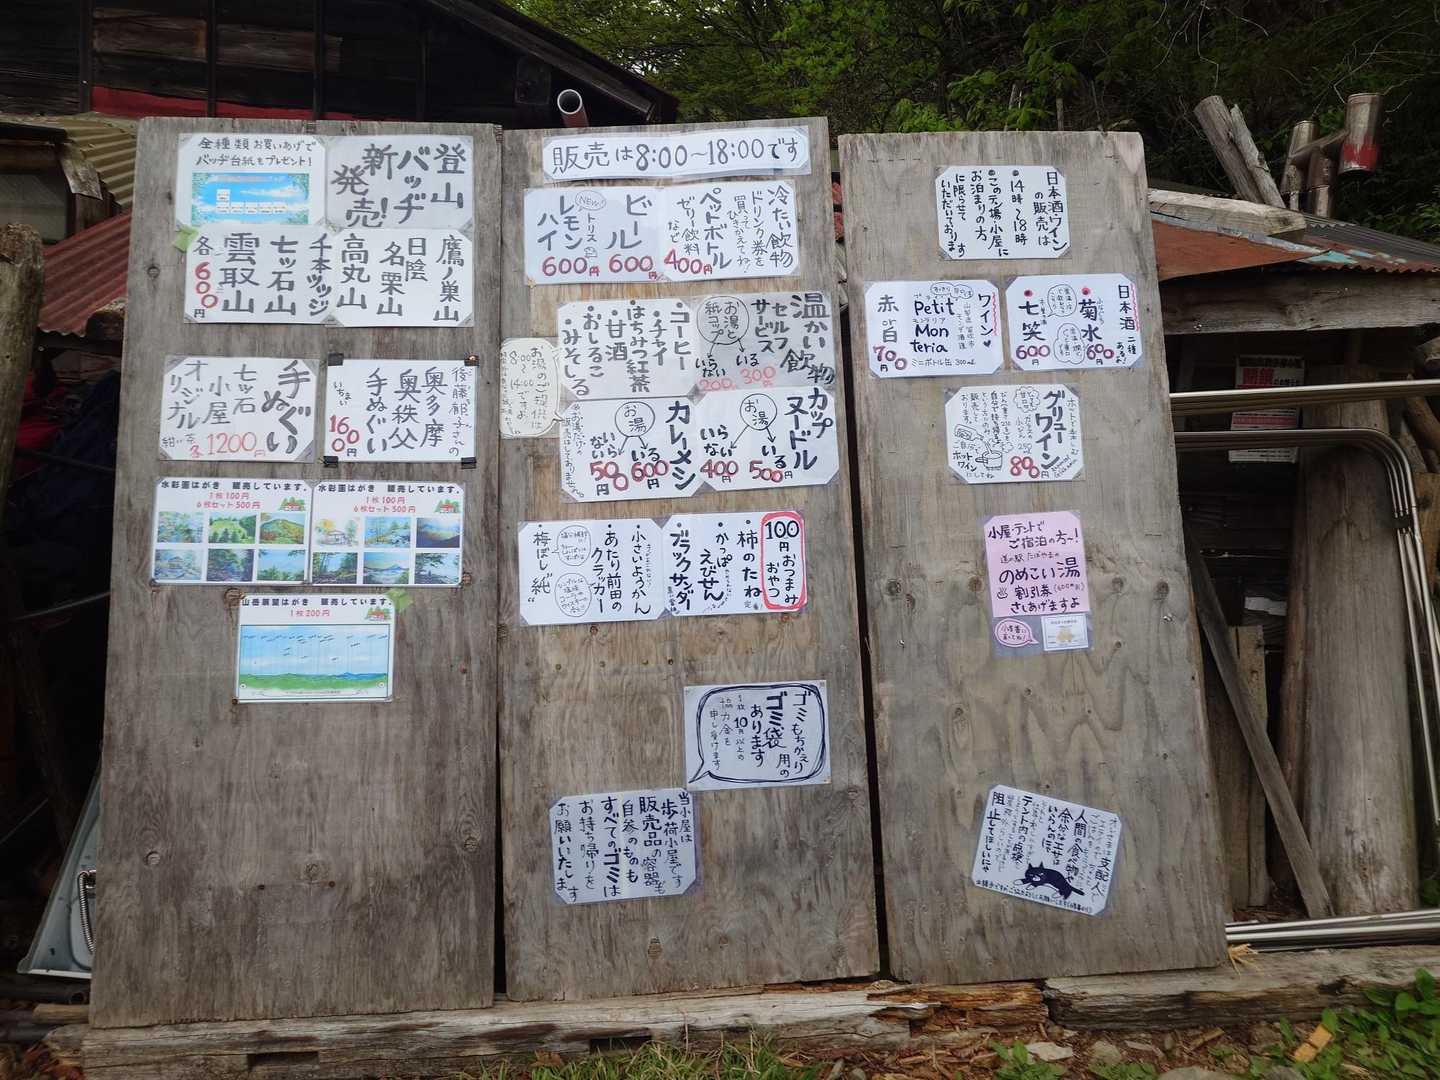 全種類お買いあげで
バッヂ台紙もプレゼント!
登山
バッヂ
新
発売!
鷹ノ巣山
日陰
名栗山
高丸山
千本ツツジ
七ッ石山
雲取山
各600円
手ぬぐい
七ッ石
小屋
オリジナル
1200円
後藤郁子さんの
奥多摩
奥秩父
手ぬぐい
1600円
水彩画はがき 販売しています。
1枚100円
6枚セット500円
水彩画はがき 販売しています。
1枚100円
6枚セット500円
山岳展望はがき 販売しています。
1枚200円
販売は8:00~18:00です
冷たい飲物
ドリンク券を
買って
ひきかえてね!
ペットボトル
ゼリー飲料
など
400円
ビール
600円
NEW!
トリス
レモン
ハイン
600円
温かい飲物
セルフ
サービス
お湯と
紙コップ
いる
300円
いらない
200円
・コーヒー
・チャイ
・はちみつ紅茶
・甘酒
・おしるこ
・みそしる
お湯のご提供は
8:00~
カップ
ヌードル
お湯
いる
500円
いらない
400円
カレーメシ
お湯
いる
600円
いらない
500円
※お湯だけの
販売はしておりません。
100円おつまみ
おやつ
・柿のたね
・かっぱ
えびせん
・ブラックサンダー
・小さいようかん
・あたり前田の
クラッカー
・梅ぼし"純"
ゴミもちかえり
用の
ゴミ袋
あります
1枚10円以上の
協力金を
申し受けます
当小屋は
歩荷小屋です
販売品の容器も
自参のものも
すべてのゴミは
お持ち帰りを
お願いいたします
日本酒・ワイン
の販売は
14時~18時
このテン場・小屋に
お泊まりの方
に限らせて
いただいております
日本酒二種
あるよ!
菊水
600円
七笑
600円
ワイン♥
山梨県
Petit
Mon
teria
ミニボトル缶 300mL
赤or白
700円
グリューワイン
800円
ホット
ワインにしてね
小屋・テントで
ご宿泊の方へ!
道の駅たばやまの
のめこい湯
割引券
さしあげますよ
小屋番に
言ってね!
支配人で
人間の食べ物や
余分なエサは
いらんのにゃ
テント内の
阻止してほしいにゃ